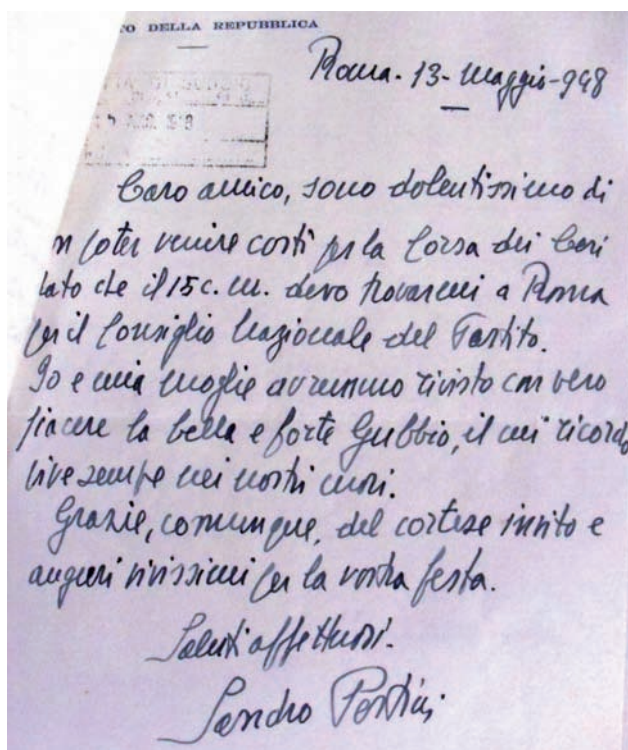 TO DELLA REPUBBLICA
Roma - 13 - Maggio - 948
Caro amico, sono dolentissimo di
n poter venire costì per la Corsa dei Ceri
dato che il 15 c. m. devo trovarmi a Roma
per il Consiglio Nazionale del Partito.
Io e mia moglie avremmo rivisto con vero
piacere la bella e forte Gubbio, il cui ricordo
vive sempre nei nostri cuori.
Grazie, comunque, del cortese invito e
auguri vivissimi per la vostra festa.
Saluti affettuosi.
Sandro Pertini